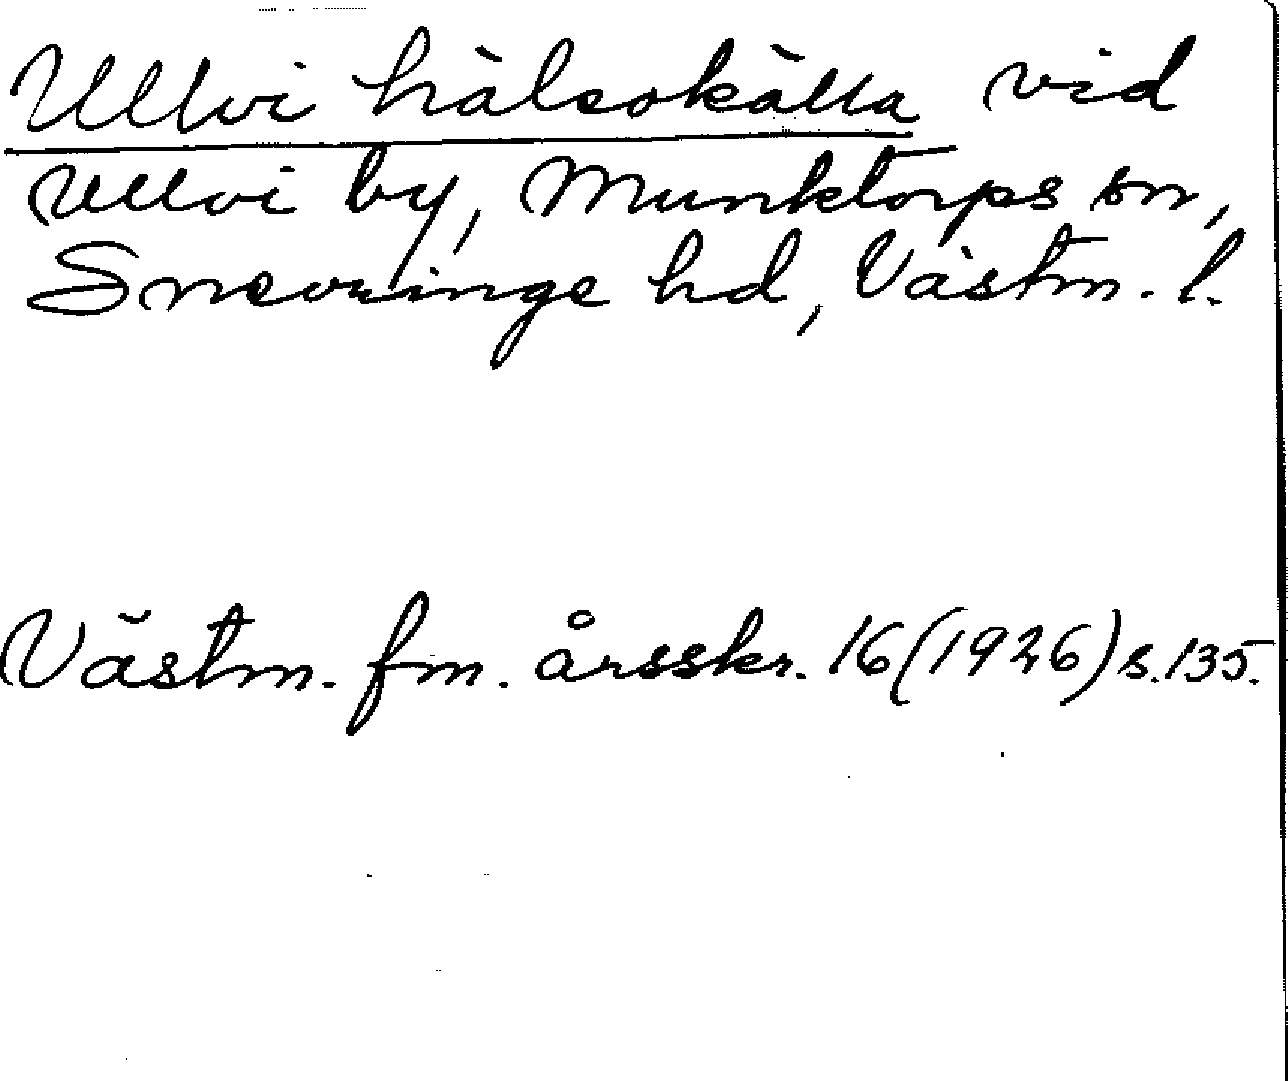 Ullvi hälsokälla vid
Ullvi by, Munktorps sn,
Snevringe hd, Västm. l.
Västm. fm. årsskr. 16 (1926) s. 135.